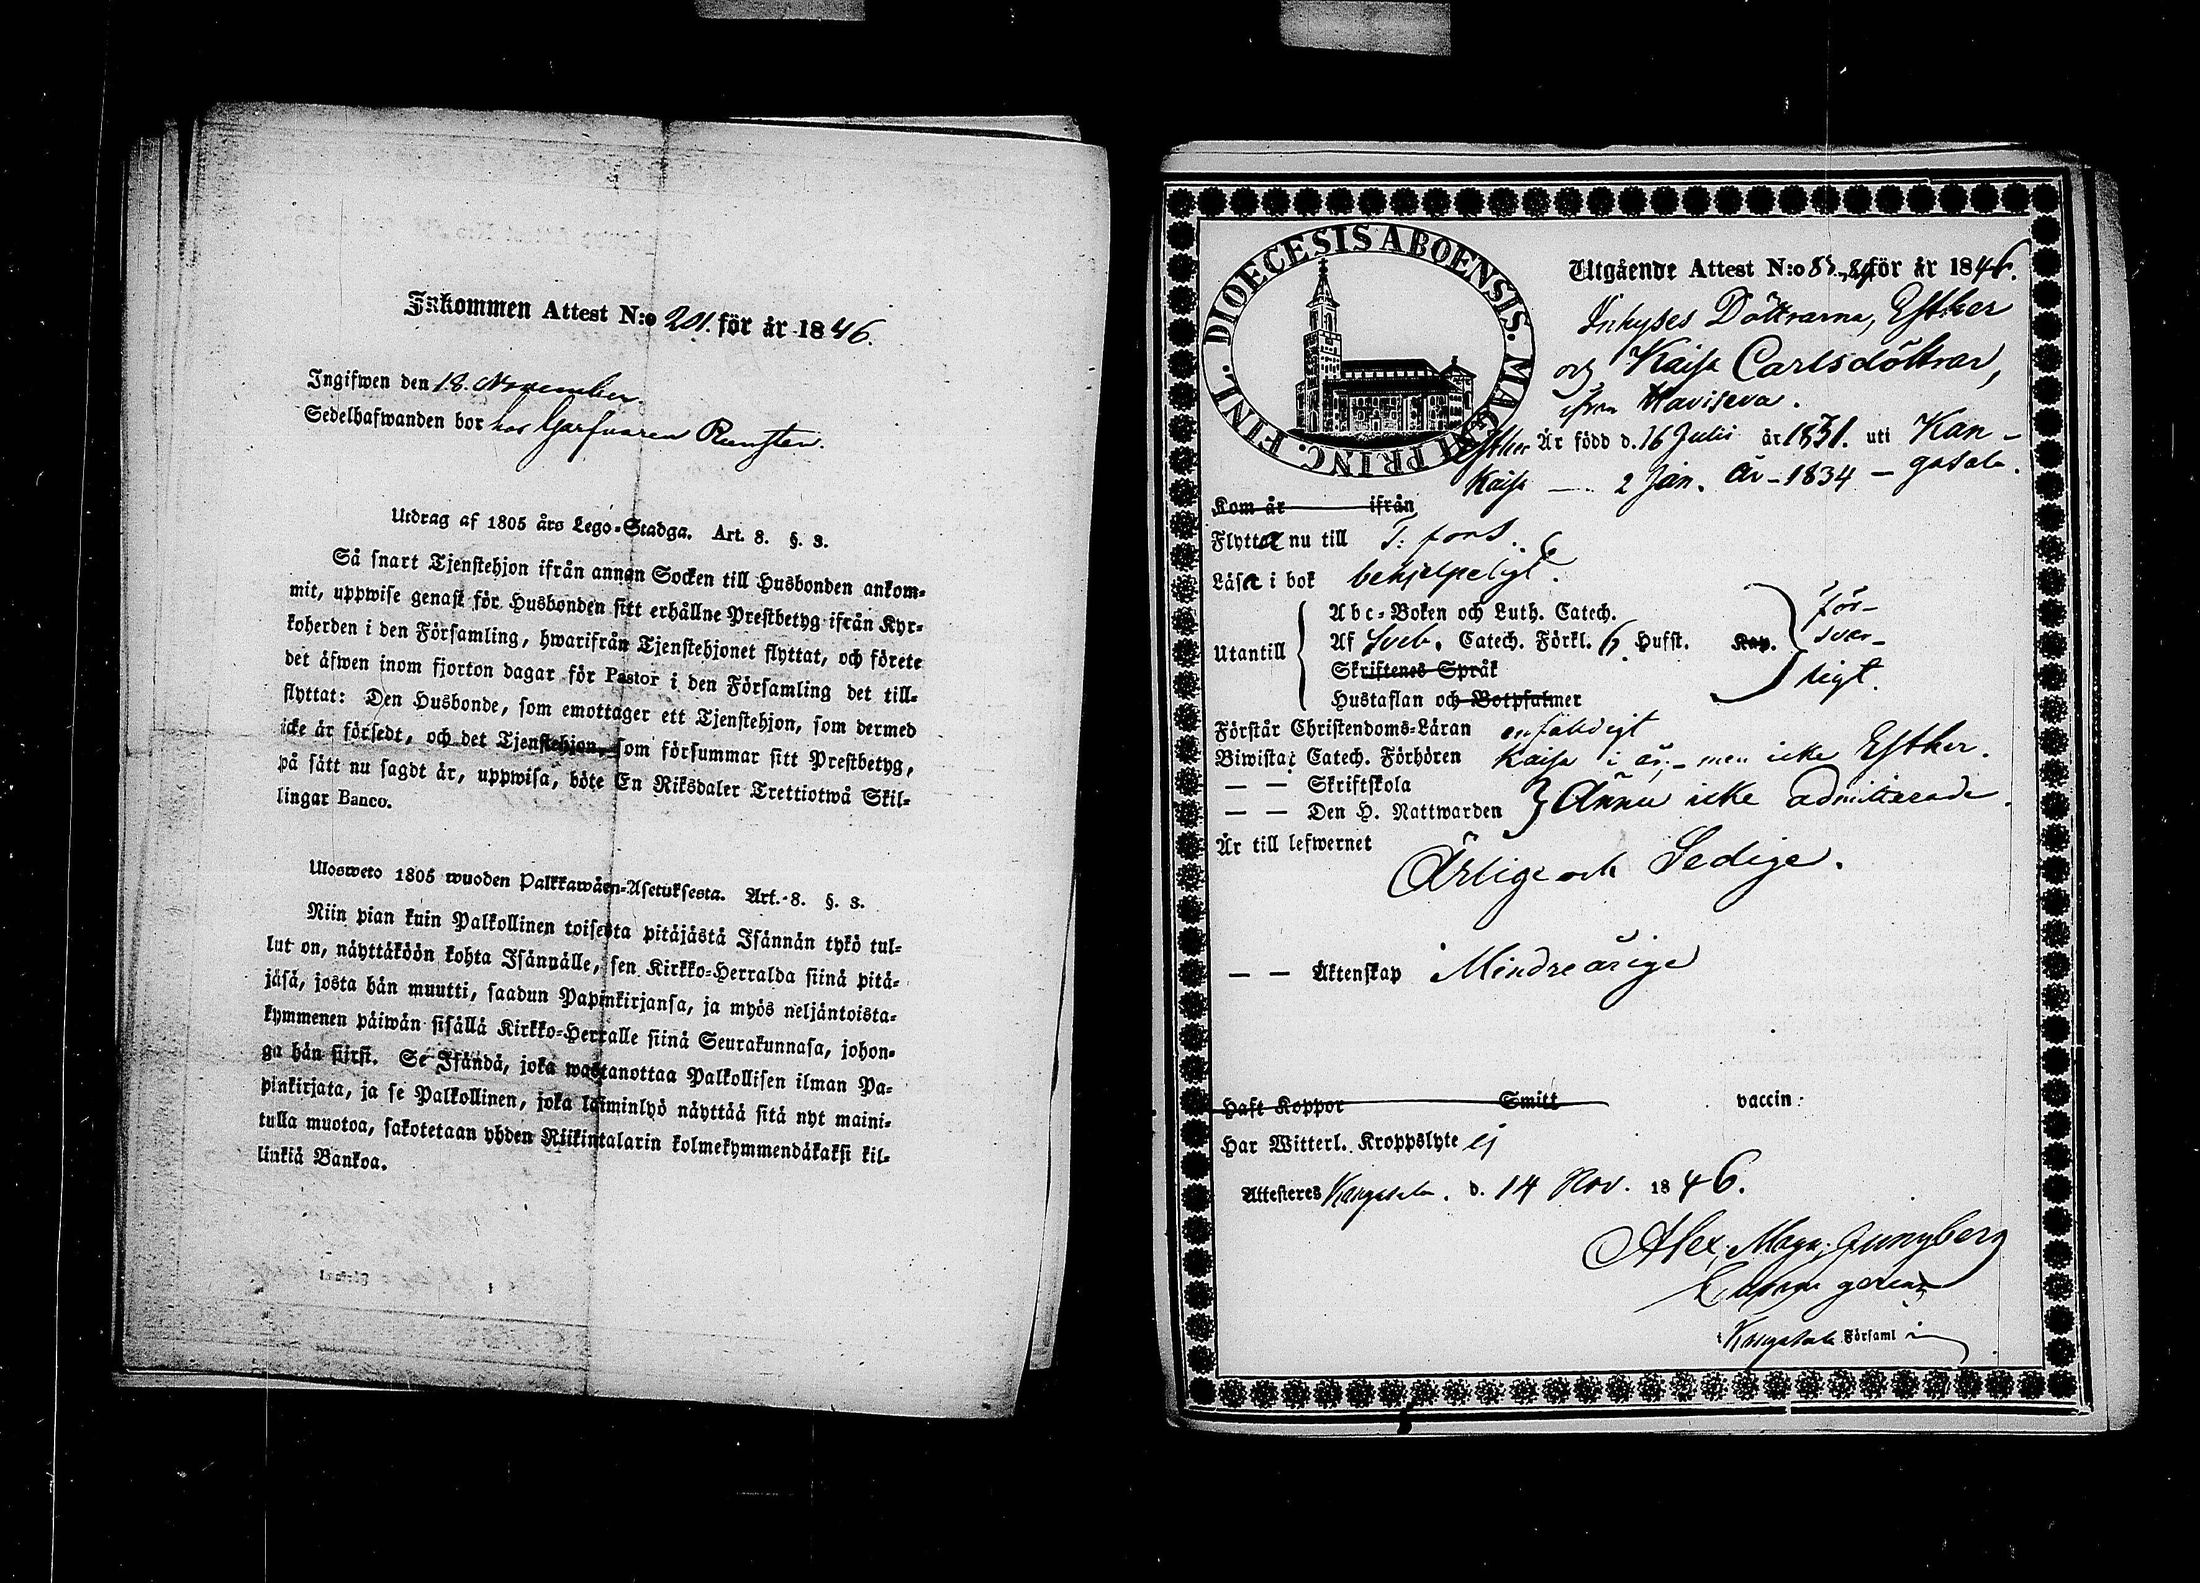 Inkommen Attest N:o 201. för år 1846.
Ingifwen den 18. November.
Sedelhafwanden bor hos Garfvaren Rungsten.
Utdrag af 1805 års Lego-Stadga. Art. 8. §. 3.
Så snart Tjenstehjon ifrån annan Socken till Husbonden ankom-
mit, uppwise genast för Husbonden sitt erhållne Prestbetyg ifrån Kyr-
koherden i den Församling, hwarifrån Tjenstehjonet flyttat, och förete
det äfwen inom fjorton dagar för Pastor i den Församling det till-
flyttat: Den Husbonde, som emottager ett Tjenstehjon, som dermed
icke är försedt, och det Tjenstehjon, som försummar sitt Prestbetyg,
på sätt nu sagdt är, uppwisa, böte En Riksdaler Trettiotwå Skil-
lingar Banco.
Ulosweto 1805 wuoden Palkkawäen-Asetuksesta. Art. 8. §. 3.
Niin pian kuin Palkollinen toisesta pitäjästä Isännän tykö tul-
lut on, näyttäköön kohta Isännälle, sen Kirkko-Herralda siinä pitä-
jäsä, josta hän muutti, saadun Papinkirjansa, ja myös neljäntoista-
kymmenen päiwän sisällä Kirkko-Herralle siinä Seurakunnasa, johon-
ga hän siirsi. Se Isändä, joka wastanottaa Palkollisen ilman Pa-
pinkirjata, ja se Palkollinen, joka laiminlyö näyttää sitä nyt maini-
tulla muotoa, sakotetaan yhden Riikintalarin kolmekymmendäkaksi kil-
linkiä Bankoa.
DIOECESIS ABOENSIS. MAGNI PRINC. FINL.
Utgående Attest N:o för år 1846.
Inhyses Döttrarna, Esther
och Kaisa Carlsdöttrar,
ifrån Havisева.
Esther Är född d. 16 Julii år 1831. uti Kan-
Kaisa — 2 Jan. år - 1834 - gasala.
Kom år ifrån
Flytta nu till T: fors.
Läsa i bok behjelpeligt.
Utantill
Abc-Boken och Luth. Catech.
Af Sveb. Catech. Förkl. 6 Hufst. Kap.
Skriftenes Språk
Hustaflan och Botpsalmer
för-
svar-
ligt.
Förstår Christendoms-Läran enfaldigt
Biwistat Catech. Förhören Kaisa i år, - men icke Esther.
— — Skriftskola
— — Den H. Nattwarden } Ännu icke admitterade.
Är till lefwernet Ärlige och Sedige.
— — Äktenskap Mindreårige
Haft Koppor Smitt vaccin:
Har Witterl. Kroppslyte ej
Attesteres Kangasala. d. 14 Nov. 1846.
Alex. Magn. Ljungberg
i Kangasala Församl